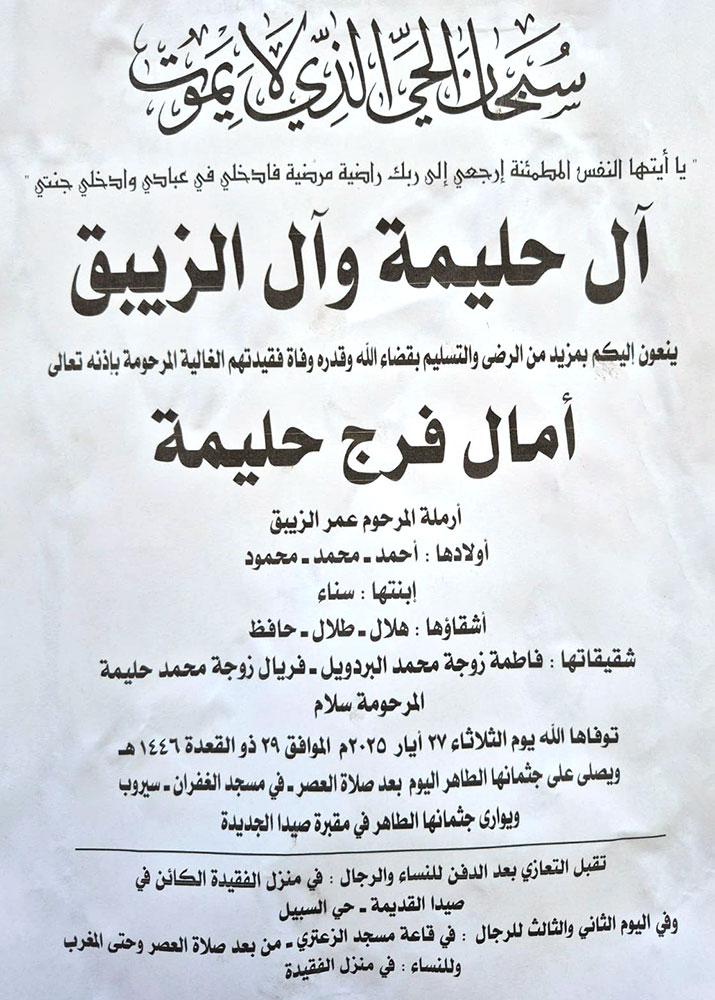 سُبْحَانَ الحَيِّ الَّذِي لَا يَمُوتُ
" يا أيتها النفس المطمئنة إرجعي إلى ربك راضية مرضية فادخلي في عبادي وادخلي جنتي "
آل حليمة وآل الزيبق
ينعون إليكم بمزيد من الرضى والتسليم بقضاء الله وقدره وفاة فقيدتهم الغالية المرحومة بإذنه تعالى
أمال فرج حليمة
أرملة المرحوم عمر الزيبق
أولادها : أحمد ـ محمد ـ محمود
إبنتها : سناء
أشقاؤها : هلال ـ طلال ـ حافظ
شقيقاتها : فاطمة زوجة محمد البردويل ـ فريال زوجة محمد حليمة
المرحومة سلام
توفاها الله يوم الثلاثاء ٢٧ أيار ٢٠٢٥م الموافق ٢٩ ذو القعدة ١٤٤٦ هـ
ويصلى على جثمانها الطاهر اليوم بعد صلاة العصر ـ في مسجد الغفران ـ سيروب
ويوارى جثمانها الطاهر في مقبرة صيدا الجديدة
تقبل التعازي بعد الدفن للنساء والرجال : في منزل الفقيدة الكائن في
صيدا القديمة ـ حي السبيل
وفي اليوم الثاني والثالث للرجال : في قاعة مسجد الزعتري ـ من بعد صلاة العصر وحتى المغرب
وللنساء : في منزل الفقيدة